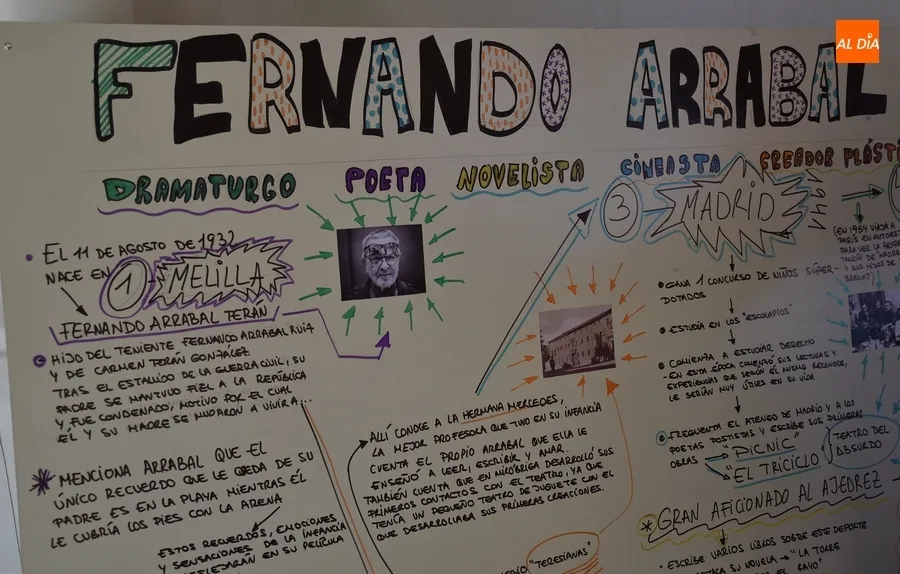 AL DÍA
FERNANDO ARRABAL
DRAMATURGO
POETA
NOVELISTA
CINEASTA
CREADOR PLÁSTI
• EL 11 DE AGOSTO DE 1932
NACE EN 1 MELILLA
FERNANDO ARRABAL TERÁN
HIJO DEL TENIENTE FERNANDO ARRABAL RUIZ
Y DE CARMEN TERÁN GONZÁLEZ.
TRAS EL ESTALLIDO DE LA GUERRA CIVIL, SU
PADRE SE MANTUVO FIEL A LA REPÚBLICA
Y FUE CONDENADO, MOTIVO POR EL CUAL
ÉL Y SU MADRE SE MUDARON A VIVIR A...
* MENCIONA ARRABAL QUE EL
ÚNICO RECUERDO QUE LE QUEDA DE SU
PADRE ES EN LA PLAYA MIENTRAS ÉL
LE CUBRÍA LOS PIES CON LA ARENA
ESTOS RECUERDOS, EMOCIONES
Y SENSACIONES DE LA INFANCIA
EN SU PELÍCULA
ALLÍ CONOCE A LA HERMANA MERCEDES,
LA MEJOR PROFESORA QUE TUVO EN SU INFANCIA
CUENTA EL PROPIO ARRABAL QUE ELLA LE
ENSEÑÓ A LEER, ESCRIBIR Y AMAR.
TAMBIÉN CUENTA QUE EN MIRÓBRIGA DESARROLLÓ SUS
PRIMEROS CONTACTOS CON EL TEATRO, YA QUE
TENÍA UN PEQUEÑO TEATRO DE JUGUETE CON EL
QUE DESARROLLABA SUS PRIMERAS CREACIONES.
"TERESIANAS"
3 MADRID
1947
• GANA 1 CONCURSO DE NIÑOS SUPER-
DOTADOS
• ESTUDIA EN LOS "ESCOLAPIOS"
• COMIENZA A ESTUDIAR DERECHO
- EN ESTA ÉPOCA COMENTÓ SUS LECTURAS Y
EXPERIENCIAS QUE SEGÚN ÉL MISMO RECONOCE,
LE SERÍAN MUY ÚTILES EN SU VIDA
• FRECUENTA EL ATENEO DE MADRID Y A LOS
POETAS POSTISTAS Y ESCRIBE SUS PRIMERAS
OBRAS "PICNIC"
"EL TRICICLO"
TEATRO DEL
ABSURDO
* GRAN AFICIONADO AL AJEDREZ
• ESCRIBE VARIOS LIBROS SOBRE ESTE DEPORTE
SU NOVELA → "LA TORRE
EL RAYO"
(EN 1954 VIAJA A
PARÍS EN AUTOEST
PARA VER LA REPRE
TACIÓN DE "MADRE
Y SUS HIJOS" DE
BRECHT)